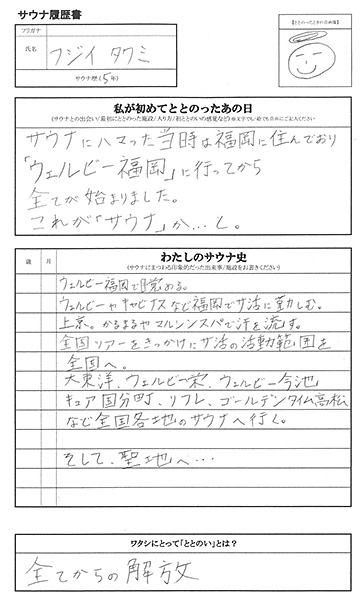 サウナ履歴書
フリガナ
氏名
フジイ タクミ
サウナ歴(5年)
【ととのったときの自画像】
私が初めてととのったあの日
(サウナとの出会い/最初にととのった施設/入り方/初ととのいの感覚など)※文字でも/絵でも自由にご記入ください
サウナにハマった当時は福岡に住んでおり
「ウェルビー福岡」に行ってから
全てが始まりました。
これが「サウナ」か…と。
歳 月 わたしのサウナ史
(サウナにまつわる印象的だった出来事/施設をお書きください)
ウェルビー福岡で目覚める。
ウェルビーやキャビナスなど福岡でサ活に勤しむ。
上京。かるまるやマルシンスパで汗を流す。
全国ツアーをきっかけにサ活の活動範囲を
全国へ。
大東洋、ウェルビー栄、ウェルビー今池
キュア国分町、リフレ、ゴールデンタイム高松
など全国各地のサウナへ行く。
そして、聖地へ…
ワタシにとって「ととのい」とは?
全てからの解放